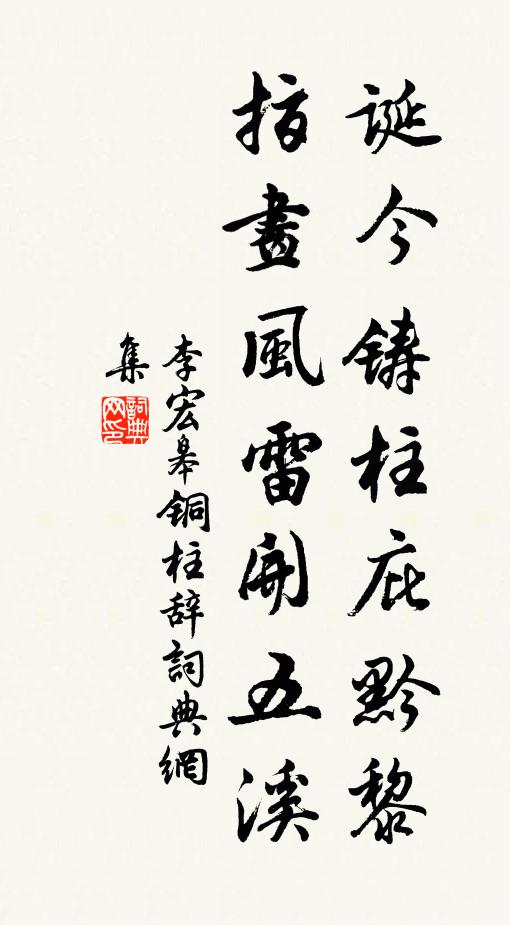 誕今鑄柱庇黔黎
指畫風雷開五溪
李宏皋銅柱辞詞典網
集
詞典
网印